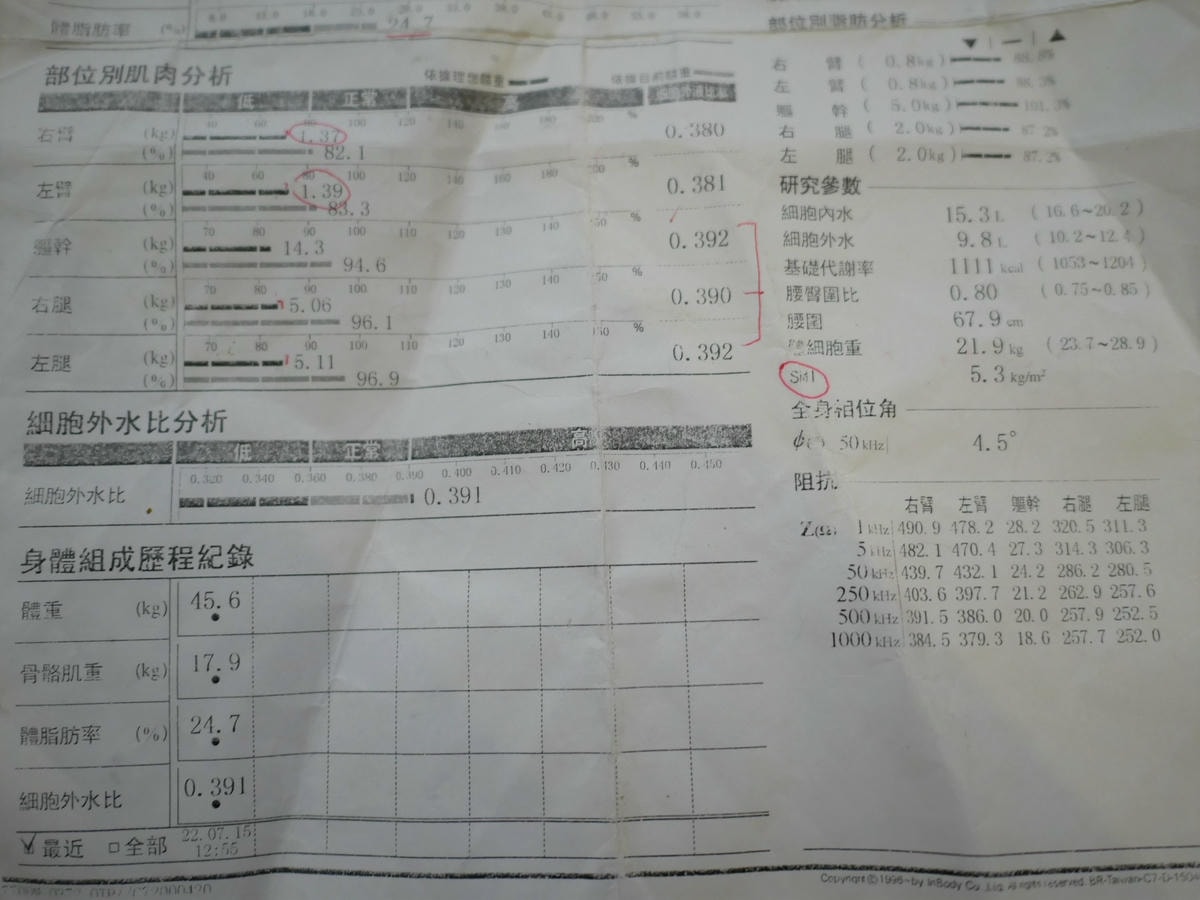 體脂肪率 (%) 24.7
部位別肌肉分析 依據理想體重 依據目前體重
低 正常 高 細胞外液比率
40 60 80 100 120 140 160 180 200 %
右臂 (kg) 1.37 0.380
(%) 82.1
40 60 80 100 120 140 160 180 200 %
左臂 (kg) 1.39 0.381
(%) 83.3
70 80 90 100 110 120 130 140 150 %
軀幹 (kg) 14.3 0.392
(%) 94.6
70 80 90 100 110 120 130 140 150 %
右腿 (kg) 5.06 0.390
(%) 96.1
70 80 90 100 110 120 130 140 150 %
左腿 (kg) 5.11 0.392
(%) 96.9
細胞外水比分析
低 正常 高
0.320 0.340 0.360 0.380 0.390 0.400 0.410 0.420 0.430 0.440 0.450
細胞外水比 0.391
身體組成歷程紀錄
體重 (kg) 45.6
骨骼肌重 (kg) 17.9
體脂肪率 (%) 24.7
細胞外水比 0.391
最近 全部 22.07.15
12:55
部位別脂肪分析
右臂 (0.8kg) 88.8%
左臂 (0.8kg) 88.3%
軀幹 (5.0kg) 101.3%
右腿 (2.0kg) 87.2%
左腿 (2.0kg) 87.2%
研究參數
細胞內水 15.3 L (16.6~20.2)
細胞外水 9.8 L (10.2~12.4)
基礎代謝率 1111 kcal (1053~1204)
腰臀圍比 0.80 (0.75~0.85)
腰圍 67.9 cm
體細胞重 21.9 kg (23.7~28.9)
SMI 5.3 kg/m²
全身相位角
φ(°) 50 kHz| 4.5°
阻抗
右臂 左臂 軀幹 右腿 左腿
Z(Ω) 1 kHz| 490.9 478.2 28.2 320.5 311.3
5 kHz| 482.1 470.4 27.3 314.3 306.3
50 kHz| 439.7 432.1 24.2 286.2 280.5
250 kHz| 403.6 397.7 21.2 262.9 257.6
500 kHz| 391.5 386.0 20.0 257.9 252.5
1000 kHz| 384.5 379.3 18.6 257.7 252.0
Copyright © 1996~by InBody Co., Ltd. All rights reserved. BR-Taiwan-C7-D-1504